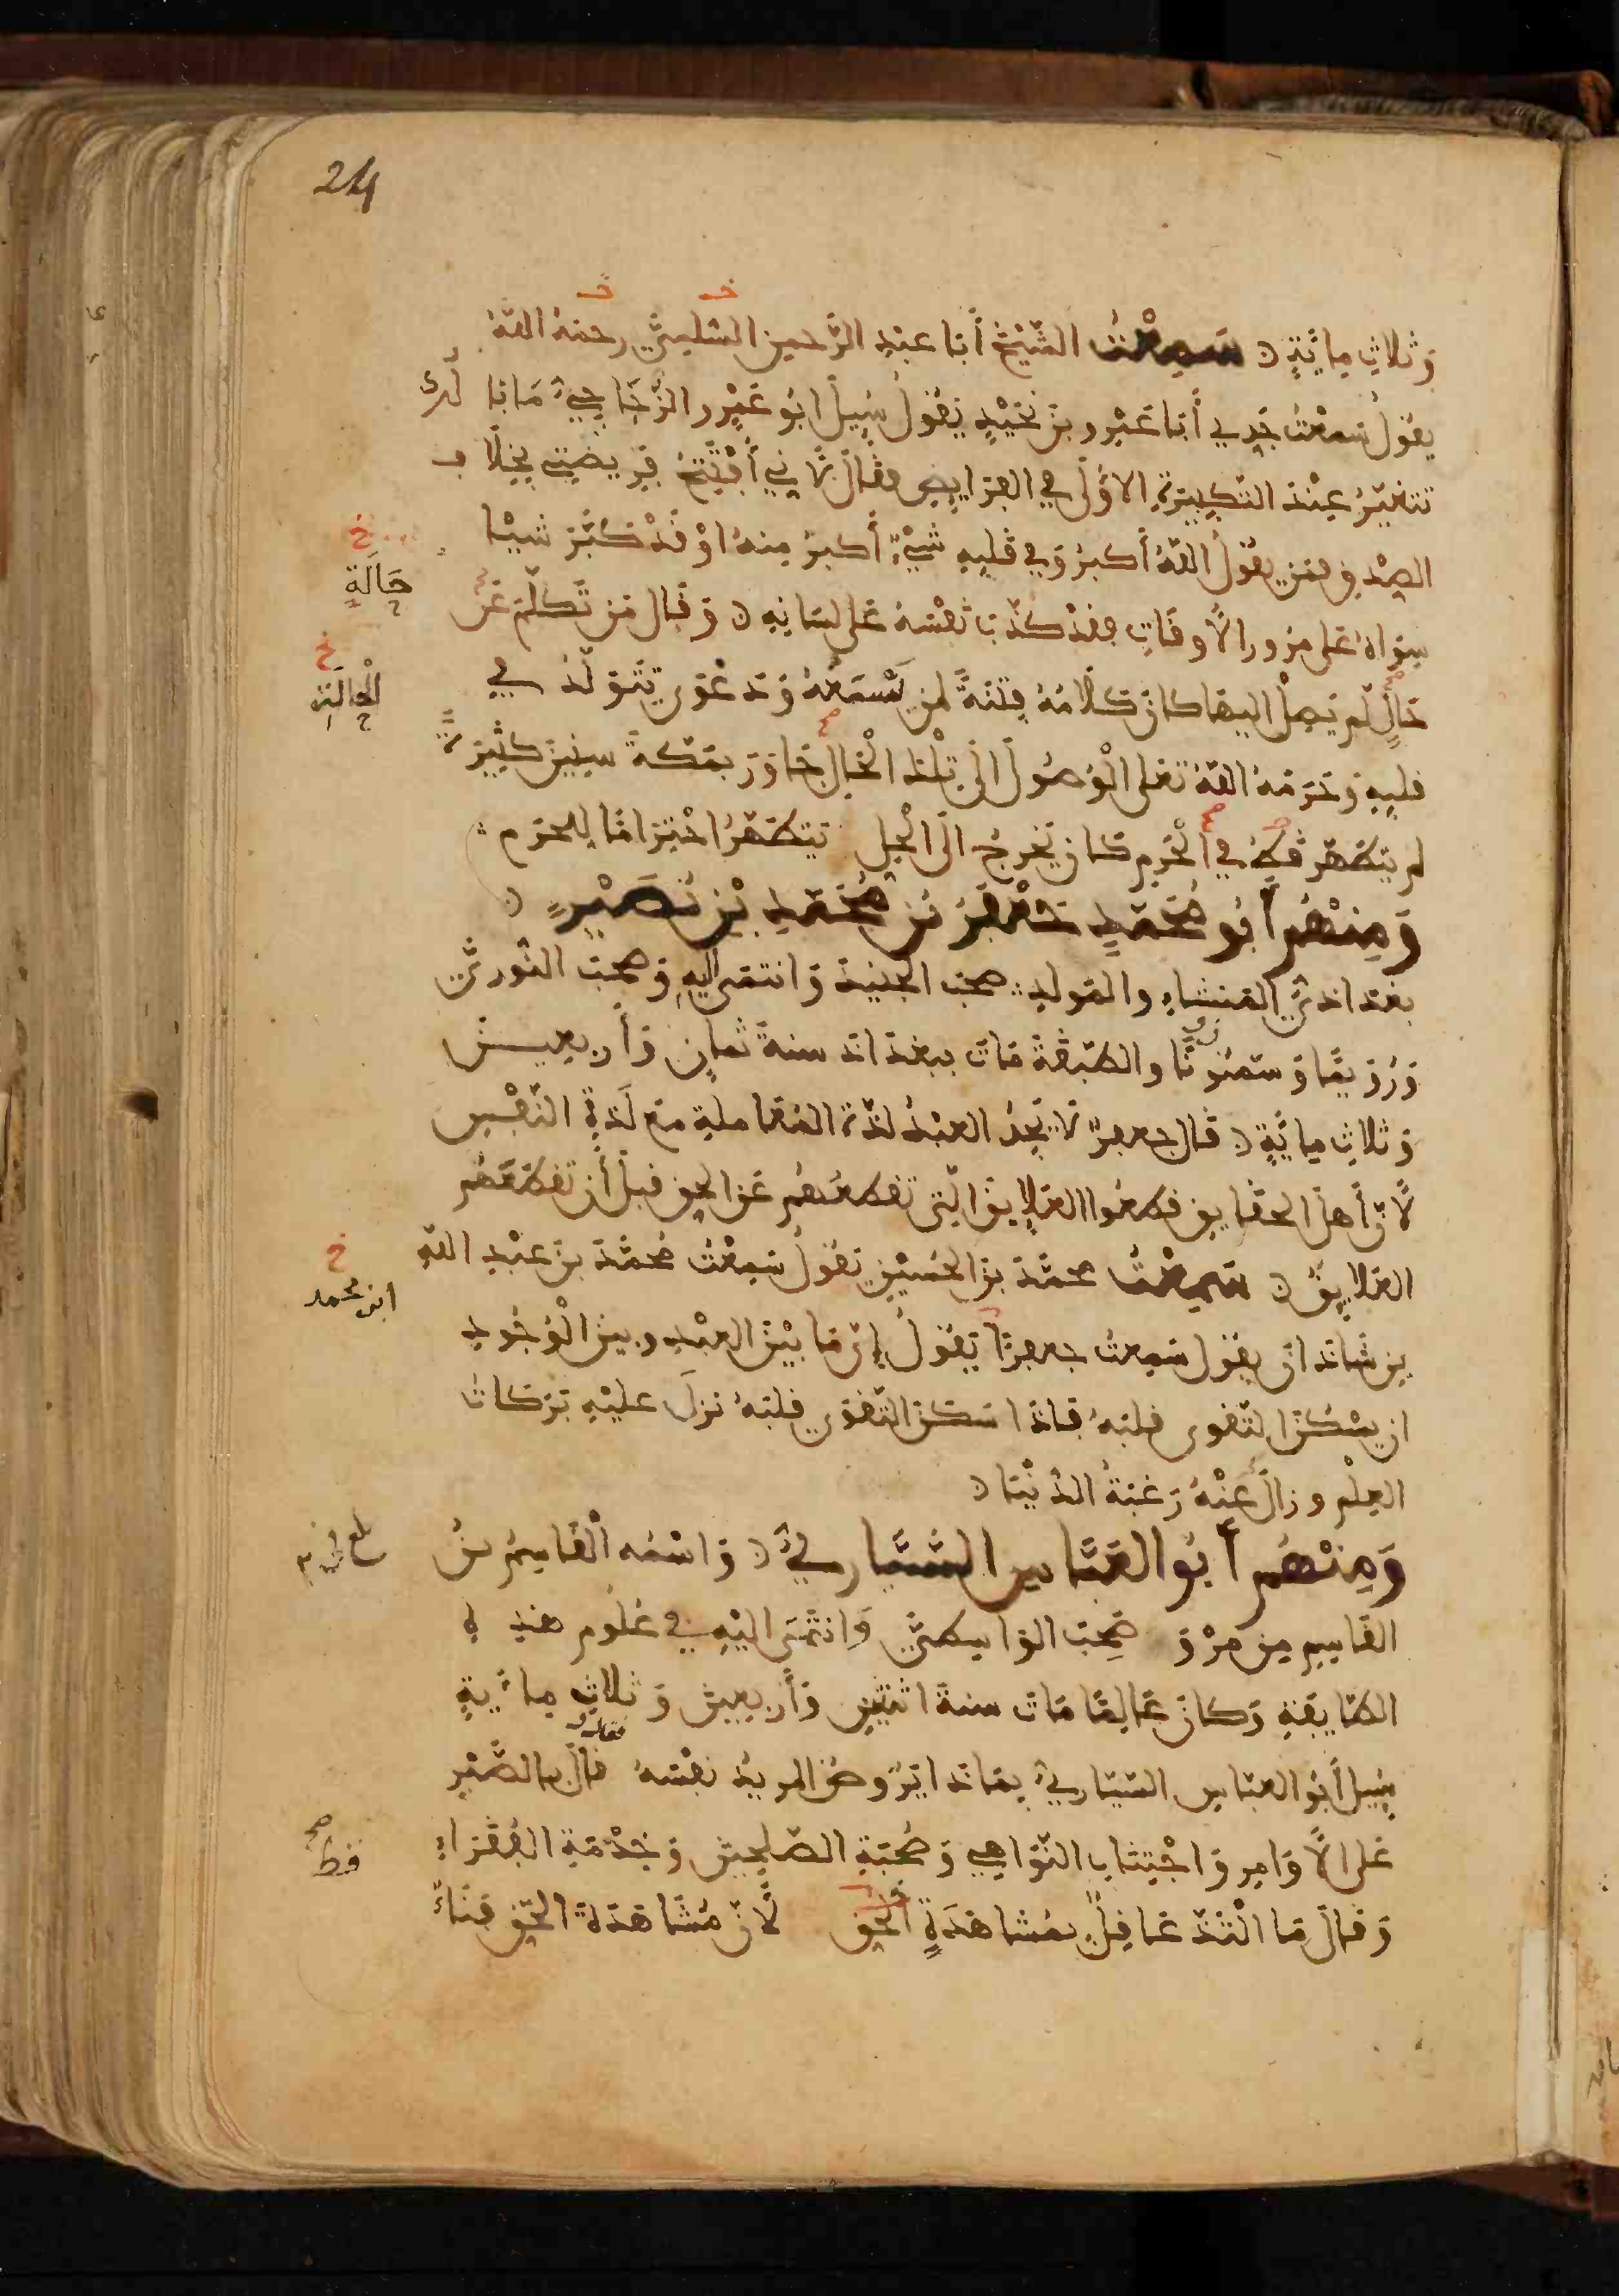 24
وَثلاثِ مِائَةٍ سَمِعْتُ الشَّيْخَ أَبَا عبْدِ الرَّحمنِ السُّلَمِيَّ رحمَهُ اللهُ
يقُولُ سَمعْتُ جَدِي أَبَا عَمْرو بنَ نُجَيْدٍ يَقُولُ سُئِلَ ابُو عَمْرو الزَّجَّاجِيُّ مَا بَا لُكَ
تتغيَّرُ عِنْدَ التَّكبِيرَةِ الأُولَى فِي الفَرَايِضِ فقَالَ لأَنِي أَفْتَتِحُ فَرِيضَتِي بِخِلافِ
الصِّدْقِ فمَن يقُولُ اللهُ أكبرُ وَفِي قَلبِهِ شَيْءٌ أكبرُ مِنهُ اوْ قَدْ كَبَّرَ شَيْئا
سِوَاهُ عَلى مرُورِ الأوقَاتِ فقدْ كَذَّبَ نَفْسَهُ عَلى لسَانِهِ وَقَالَ مَن تَكلّمَ عَنْ
حَالَةٍ
حَالٍ لَم يَصِلْ اليهَا كانَ كلامُهُ فِتْنَةً لمَن يَسْمَعُهُ وَدَعْوَى تتَوَلَّدُ فِي
الْحالَةِ
قلبِهِ وَحَرَمَهُ اللهُ تعَلى الْوُصُولَ الَى تِلْكَ الْحَالِ جَاوَرَ بمَكةَ سِنِينَ كثِيرَةً
لم يتطَهَّر قطُّ فِي الْحَرَمِ كَانَ يَخْرجُ الَى الْحِلِّ يَتطَهَّرُ احْتِرَامًا لِلحَرَمِ
وَمِنْهُم أَبُو مُحَمَّدٍ جَعْفَرُ بْنُ مُحَمَّدِ بْنِ نُصَيْرٍ
بغدَاديُّ المَنشَإِ والمَولِدِ صحبَ الجنَيدَ وَانتمَى اليهِ وَصَحبَ النُّورِيَّ
وَرُوَيمًا وَسَمْنُونًا والطّبَقَةَ مَاتَ ببغدَادَ سنةَ ثمَانٍ وَأربعِينَ
وَثلاثِ مِائَةٍ قَالَ جعفرٌ لا يَجِدُ العبْدُ لذَّةَ المُعَاملةِ معَ لَذَةِ النّفْسِ
لأنّ أهلَ الحقَايقِ قطعُوا العَلايِقَ الّتِي تقطعُهُم عَن الحقِ قبْلَ أن تَقطَعَهُم
العَلايِقُ سَمِعْتُ محمَّدَ بنَ الحُسَيْنِ يَقُولُ سَمِعْتُ مُحمَّدَ بنَ عبْدِ اللهِ
ابن محمد
بنِ شَاذَانَ يقُولُ سَمِعتُ جعفرًا يَقُولُ إِنّ مَا بَيْنَ العبْدِ وبينَ الْوُجُودِ
ان يسْكُنَ التّقوَى قلبَهُ فَاذَا سَكنَ التّقوَى قلبَهُ نزلَ عليْهِ بَرَكاتُ
العِلْمِ وزَالَ عنْهُ رَغبَةُ الدُّنْيَا
وَمِنْهُم أَبُو العَبَّاسِ السَّيَّارِيُّ وَاسْمُه الْقَاسِمُ بنُ
القَاسِمِ مِن مرْوَ صَحِبَ الوَاسِطيَّ وَانتَمَى اليْهِ فِي عُلُومِ هَذِهِ
الطّايفَةِ وَكانَ عَالِمًا مَاتَ سنةَ اثنَتَيْنِ وَأربعِينَ وَثلاثِ مِائَةٍ
سُئِلَ أبُو العبّاسِ السّيّارِيُّ بِمَاذَا يَرُوضُ المريدُ نفسَهُ فقالَ بالصَّبْرِ
عَلى الأوَامِرِ وَاجْتِنَابِ النَّوَاهِي وَصُحْبَةِ الصّلِحِينَ وَخِدْمَةِ الفُقَرَاءِ
وَقالَ مَا الْتَذّ عَاقِلٌ بمُشَاهَدَةِ الحَقِ لأنّ مُشَاهَدَةَ الحَقِ فنَاءٌ